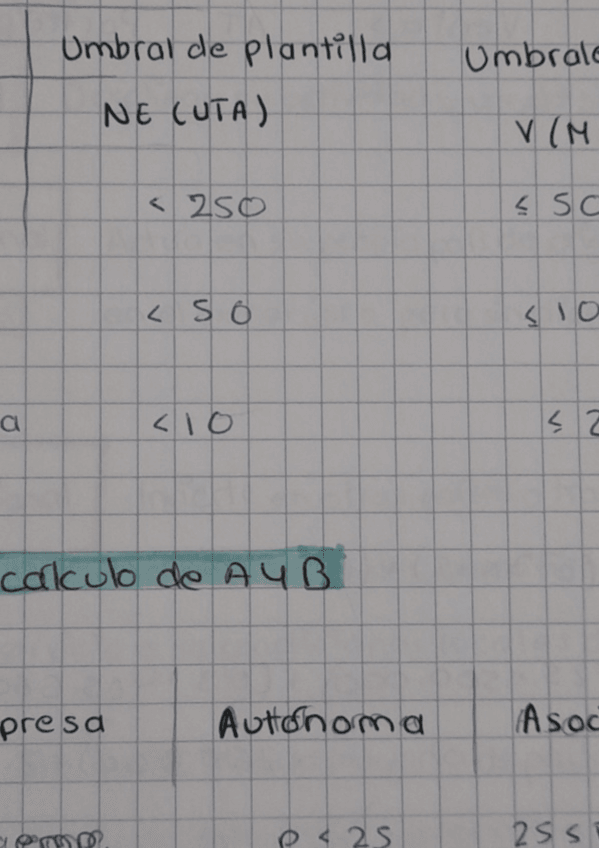 Umbral de plantilla Umbrale
NE (UTA) V (M
< 250 ≤ 50
< 50 ≤ 10
a <10 ≤ 2
calculo de A y B
presa Autónoma Asoc
p < 25 25 ≤